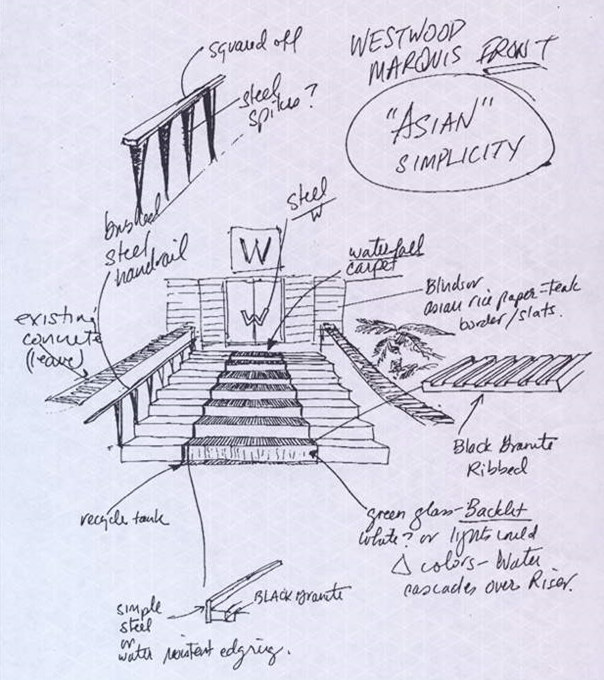 squared off
steel
spikes?
WESTWOOD
MARQUIS FRONT
"ASIAN"
SIMPLICITY
brushed
steel
handrail
steel
W
W
W
waterfall
carpet
Blinds or
asian rice paper - teak
border/slats.
existing
concrete
(leave)
Black Granite
Ribbed
recycle tank
green glass - Backlit
white? or lights could
Δ colors - Water
cascades over Riser.
simple
steel
or
water resistent edging.
BLACK Granite